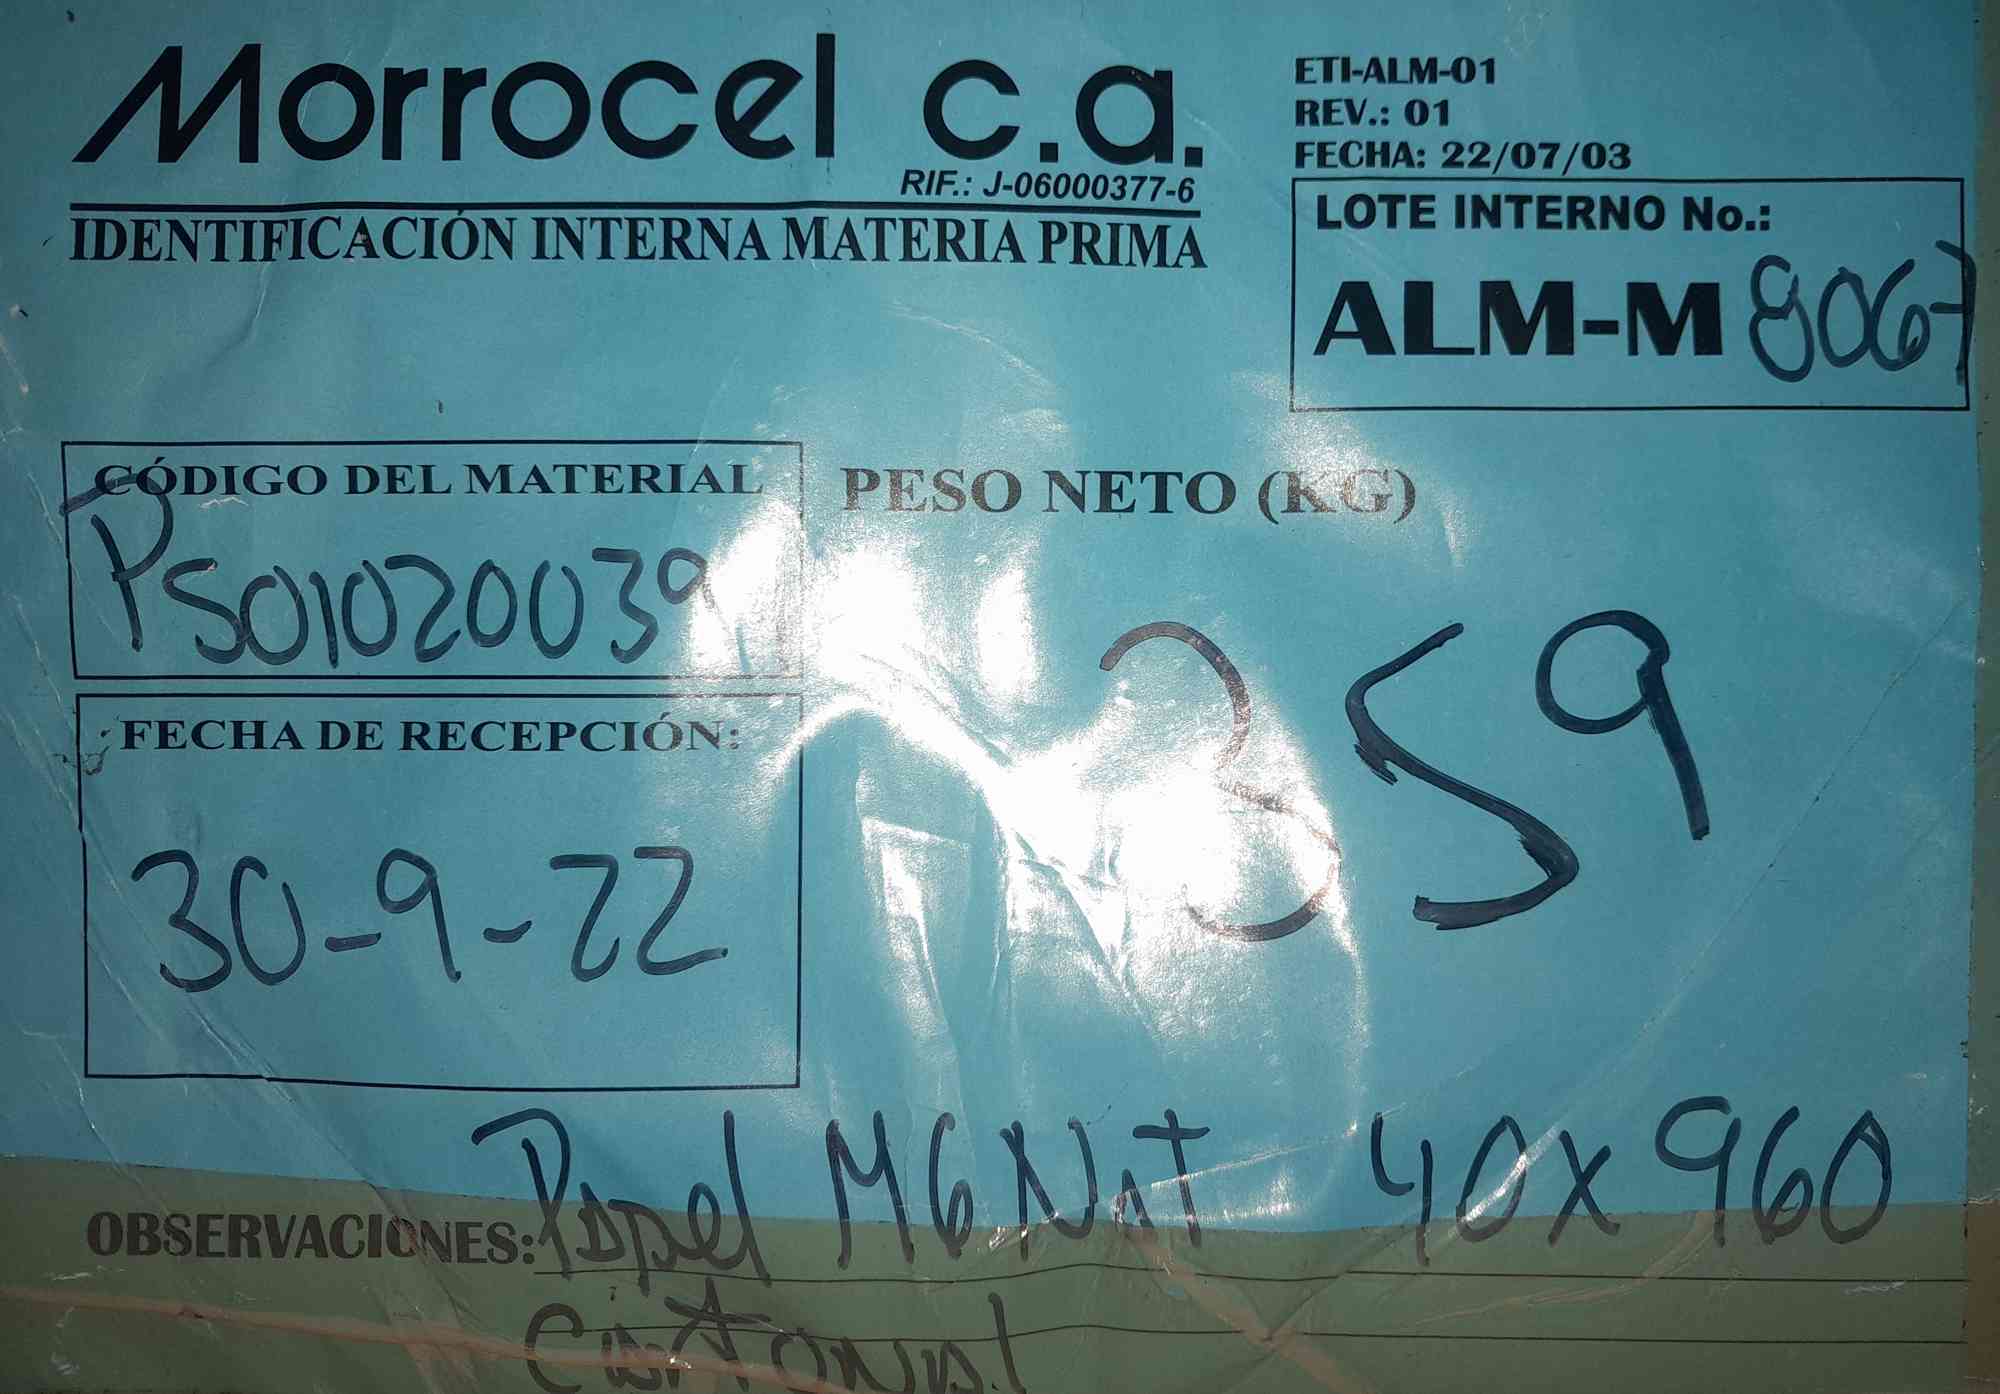 Morrocel c.a.
RIF.: J-06000377-6
IDENTIFICACIÓN INTERNA MATERIA PRIMA
ETI-ALM-01
REV.: 01
FECHA: 22/07/03
LOTE INTERNO No.:
ALM-M 8067
CÓDIGO DEL MATERIAL
PS01020039
PESO NETO (KG)
359
FECHA DE RECEPCIÓN:
30-9-22
OBSERVACIONES: Papel MG NAT 40x960
Cartonal